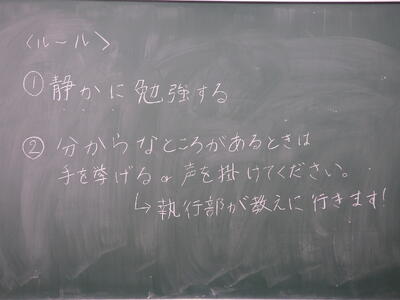 〈ルール〉
① 静かに勉強する
② 分からなところがあるときは
手を挙げる or 声を掛けてください。
↳ 執行部が教えに行きます!